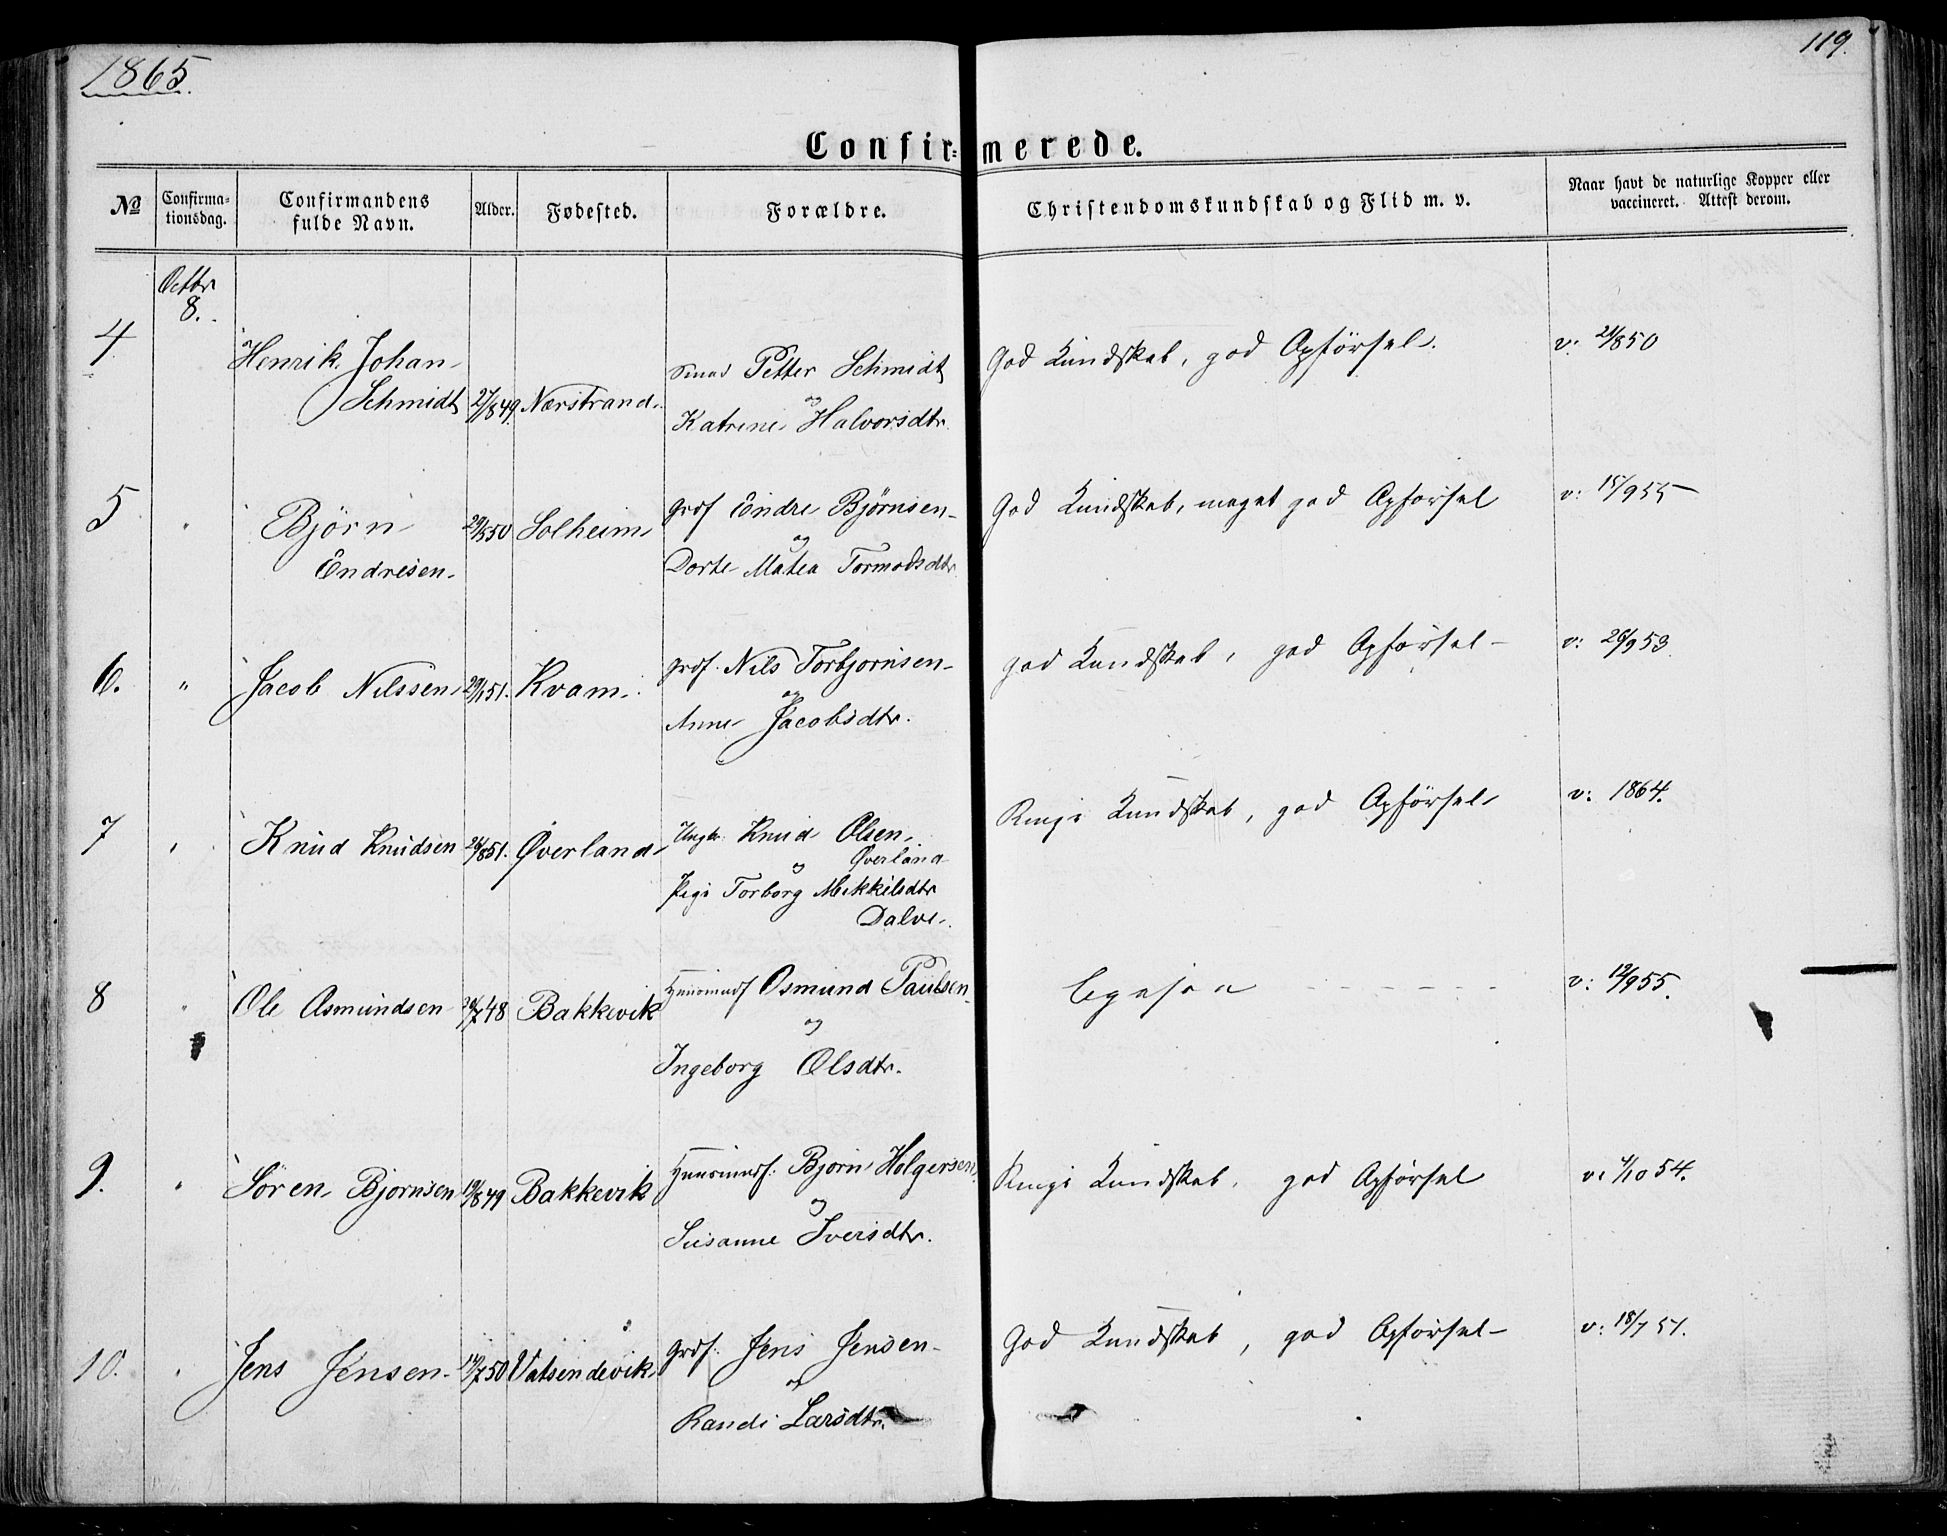 1865.
119.
Confir= merede.
No
Confirma-
tionsdag.
Confirmandens
fulde Navn.
Alder.
Fødested.
Forældre.
Christendomskundskab og Flid m. v.
Naar havt de naturlige Kopper eller
vaccineret. Attest derom.
Octbr
8.
4 Henrik Johan
Schmidt 27/849. Nærstrand.
Petter Schmidt
og
Katrine Halvorsdtr.
God Kundskab, god Opførsel. v: 21/850
5 " Björn
Endresen. 29/550 Solheim
Grdf Endre Bjørnsen
og
Dorte Matea Tormodsdtr.
God Kundskab, meget god Opførsel v: 15/955
6. " Jacob Nilssen 29/151. Kvam.
Grdf. Nils Torbjornsen
og
Anne Jacobsdtr.
god Kundskab, god Opførsel v: 26/953
7 " Knud Knudsen 26/851. Øverland
Ungk. Knud Olsen
Øverland
og
Pige Torborg Mikkilsdtr
Dalve.
Ringe Kundskab, god Opførsel v: 1864.
8 " Ole Asmundsen /748 Bakkevik
Huusmdf Osmund Paulsen
og
Ingeborg Olsdtr.
Ligesaa v: 12/955.
9. " Sören Bjornsen 19/849 Bakkevik
Huusmdf: Bjorn Holgersen
og
Susanne Iversdtr.
Ringe Kundskab, god Opførsel v: 4/10 54.
10. " Jens Jensen 14/750 Vatsendevik
Grdf: Jens Jensen
og
Randi Larsdtr.
God Kundskab, god Opførsel v: 18/7 51.